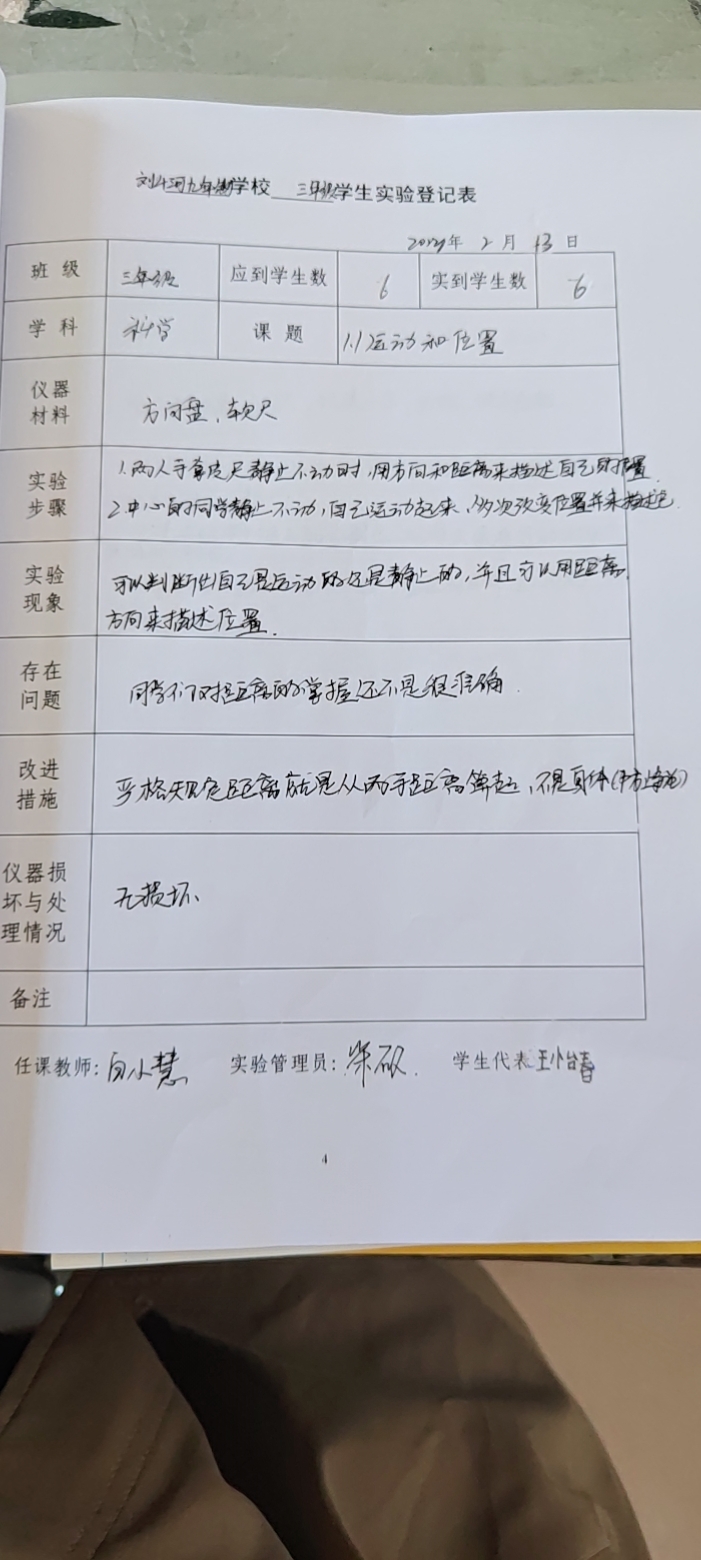 刘斗河九年制学校 三年级学生实验登记表
年 2 月 13 日
班级 三年级 应到学生数 6 实到学生数 6
学科 科学 课题 1.1运动和位置
仪器材料 方向盘、软尺
实验步骤 1.两人手拿皮尺静止不动时,用方向和距离来描述自己的位置
2.中心的同学静止不动,自己运动起来、多次改变位置并来描述
实验现象 可以判断出自己是运动的还是静止的,并且可以用距离、
方向来描述位置.
存在问题 同学们对距离的掌握还不是很准确.
改进措施 严格规定距离就是从两手距离算起,不是身体
仪器损坏与处理情况 无损坏
备注
任课教师:白小慧 实验管理员: 学生代表 王小
4